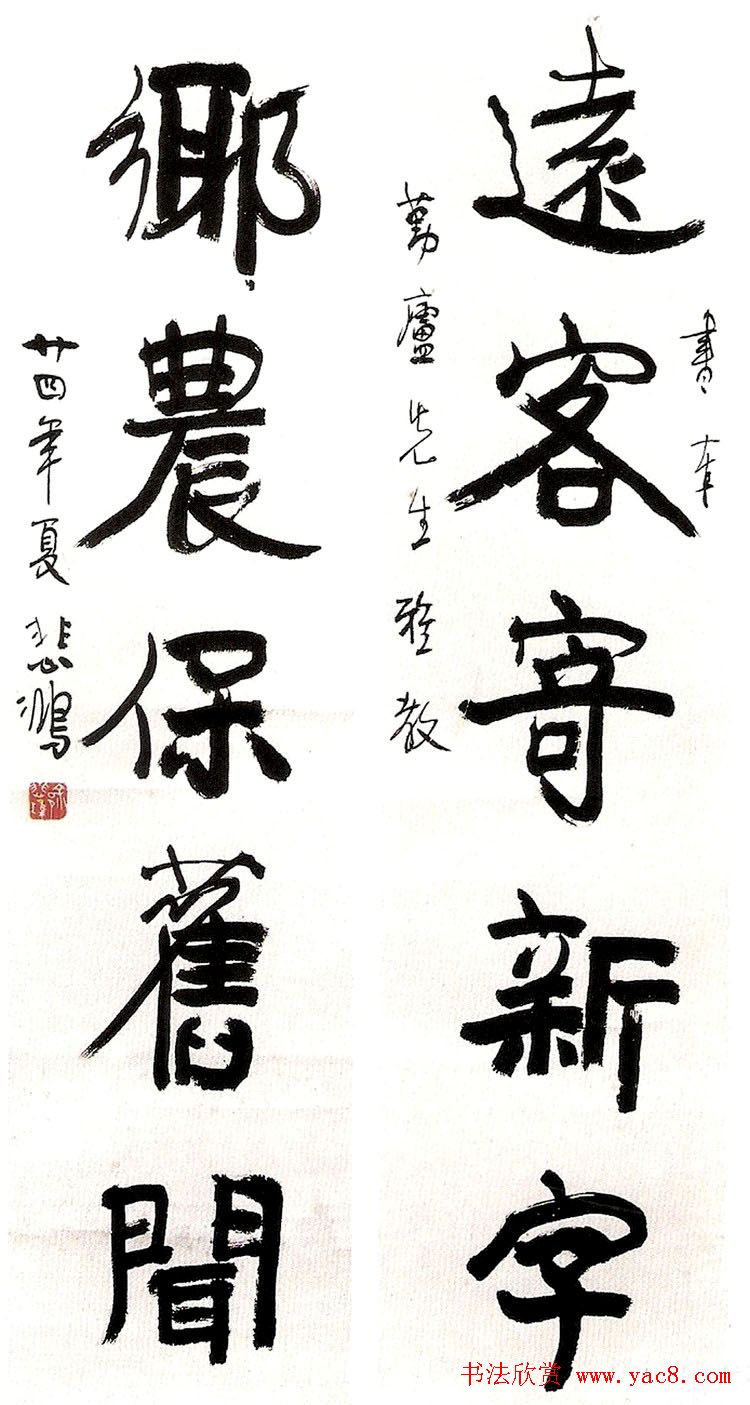 書奉
遠客寄新字
廬先生雅教
鄉農保舊聞
廿四年夏 悲鴻
书法欣赏 www.yac8.com